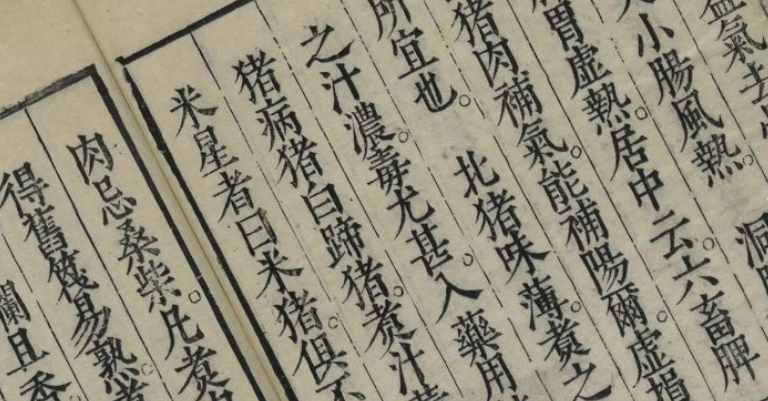 益氣去
大小腸風熱。洞
胃虛熱。居中云。六畜脾
猪肉補氣。能補陽爾。虛損
所宜也。北猪味薄。煑之
之汁濃。毒尤甚。入藥用
猪病猪白蹄猪。煑汁
米星者曰米猪。俱不
肉忌桑柴。凡煑
得舊篾易熟。
且香